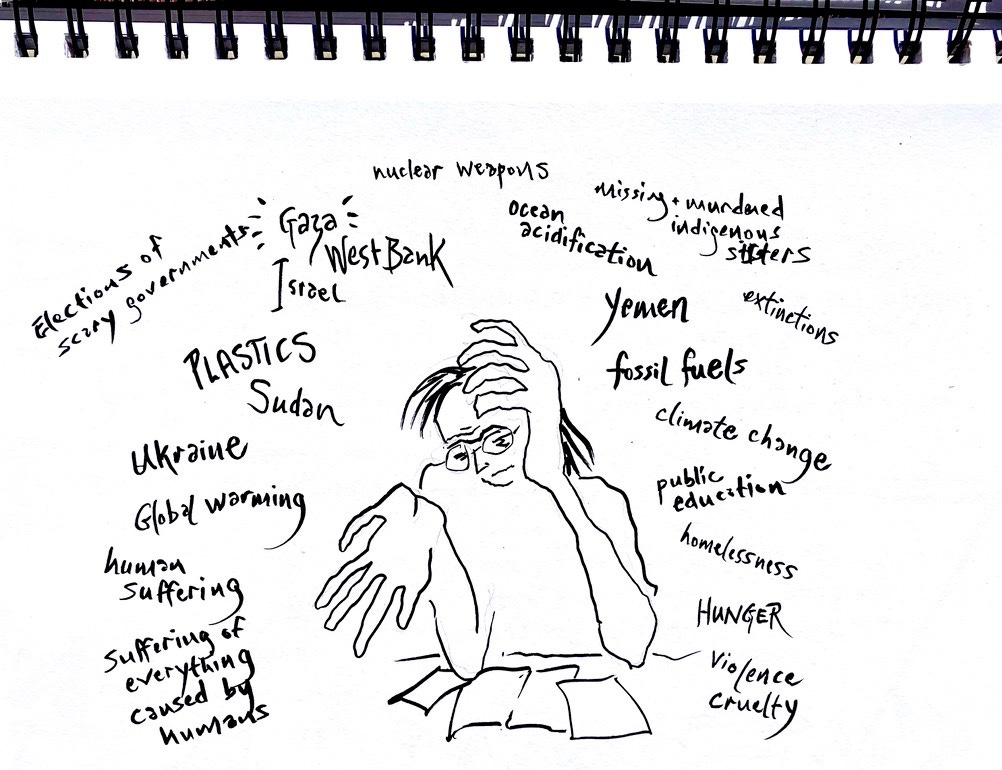 nuclear weapons
Elections of
scary governments
Gaza
West Bank
Israel
PLASTICS
Sudan
Ukraine
Global warming
human
suffering
suffering of
everything
caused by
humans
ocean
acidification
missing + murdered
indigenous
sisters
Yemen
extinctions
fossil fuels
climate change
public
education
homelessness
HUNGER
Violence
cruelty